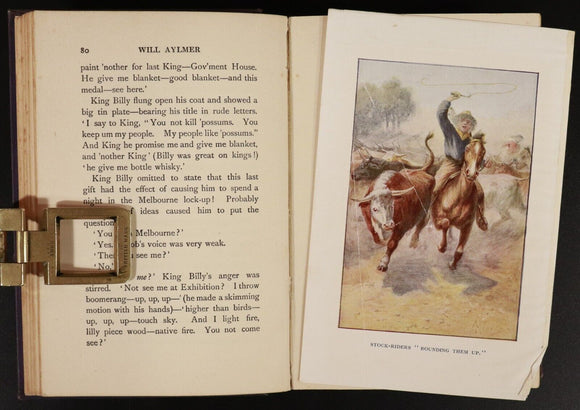 80 WILL AYLMER
paint 'nother for last King—Gov'ment House.
He give me blanket—good blanket—and this
medal—see here.'
King Billy flung open his coat and showed a
big tin plate—bearing his title in rude letters.
'I say to King, "You not kill 'possums. You
keep um my people. My people like 'possums."
And King he promise me and give me blanket,
and 'nother King' (Billy was great on kings!)
'he give me bottle whisky.'
King Billy omitted to state that this last
gift had the effect of causing him to spend a
night in the Melbourne lock-up! Probably
ideas caused him to put the
question
'You Melbourne?'
'Yes. ob's voice was very weak.
'The see me?'
'No.
me?' King Billy's anger was
stirred. 'Not see me at Exhibition? I throw
boomerang—up, up, up—' (he made a skimming
motion with his hands)—'higher than birds—
up, up, up—touch sky. And I light fire,
lilly piece wood—native fire. You not come
see?'
STOCK-RIDERS "ROUNDING THEM UP."